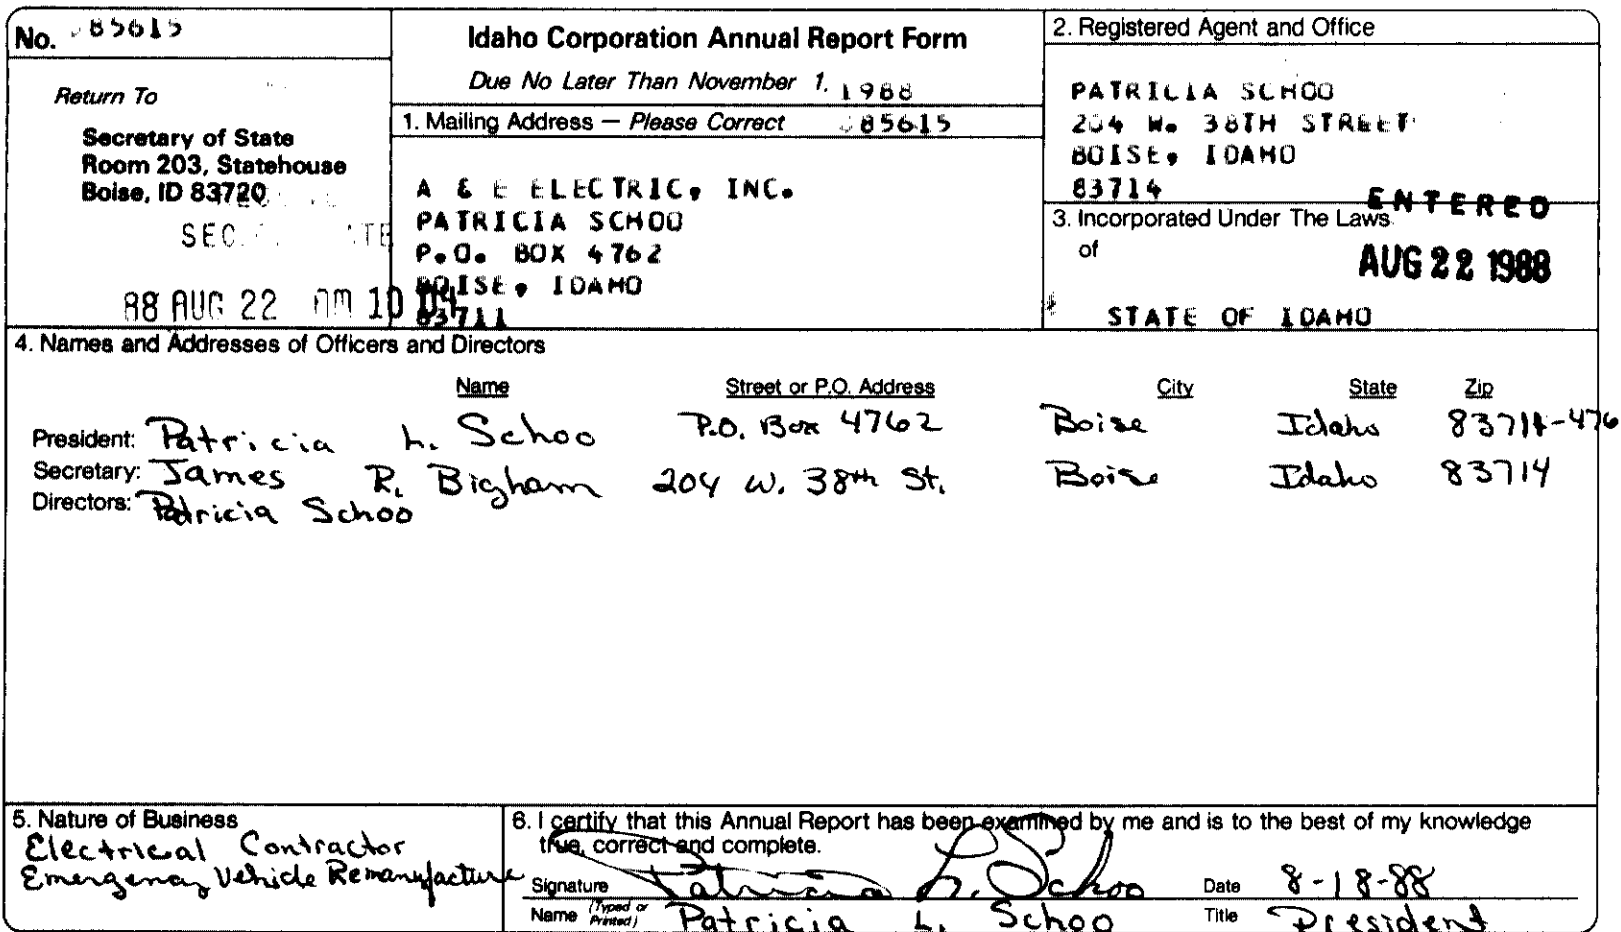 No. 85615
Idaho Corporation Annual Report Form
Due No Later Than November 1, 1988
Return To
Secretary of State
Room 203, Statehouse
Boise, ID 83720
SEC.
88 AUG 22 AM 10 04
1. Mailing Address — Please Correct 85615
A & E ELECTRIC, INC.
PATRICIA SCHOO
P.O. BOX 4762
BOISE, IDAHO
83711
2. Registered Agent and Office
PATRICIA SCHOO
204 W. 38TH STREET
BOISE, IDAHO
83714
ENTERED
3. Incorporated Under The Laws
of
AUG 22 1988
STATE OF IDAHO
4. Names and Addresses of Officers and Directors
Name Street or P.O. Address City State Zip
President: Patricia L. Schoo P.O. Box 4762 Boise Idaho 83711-476
Secretary: James R. Bigham 204 W. 38th St. Boise Idaho 83714
Directors: Patricia Schoo
5. Nature of Business
Electrical Contractor
Emergency Vehicle Remanufacture
6. I certify that this Annual Report has been examined by me and is to the best of my knowledge
true, correct and complete.
Signature Patricia L. Schoo Date 8-18-88
Name (Typed or Printed) Patricia L. Schoo Title President